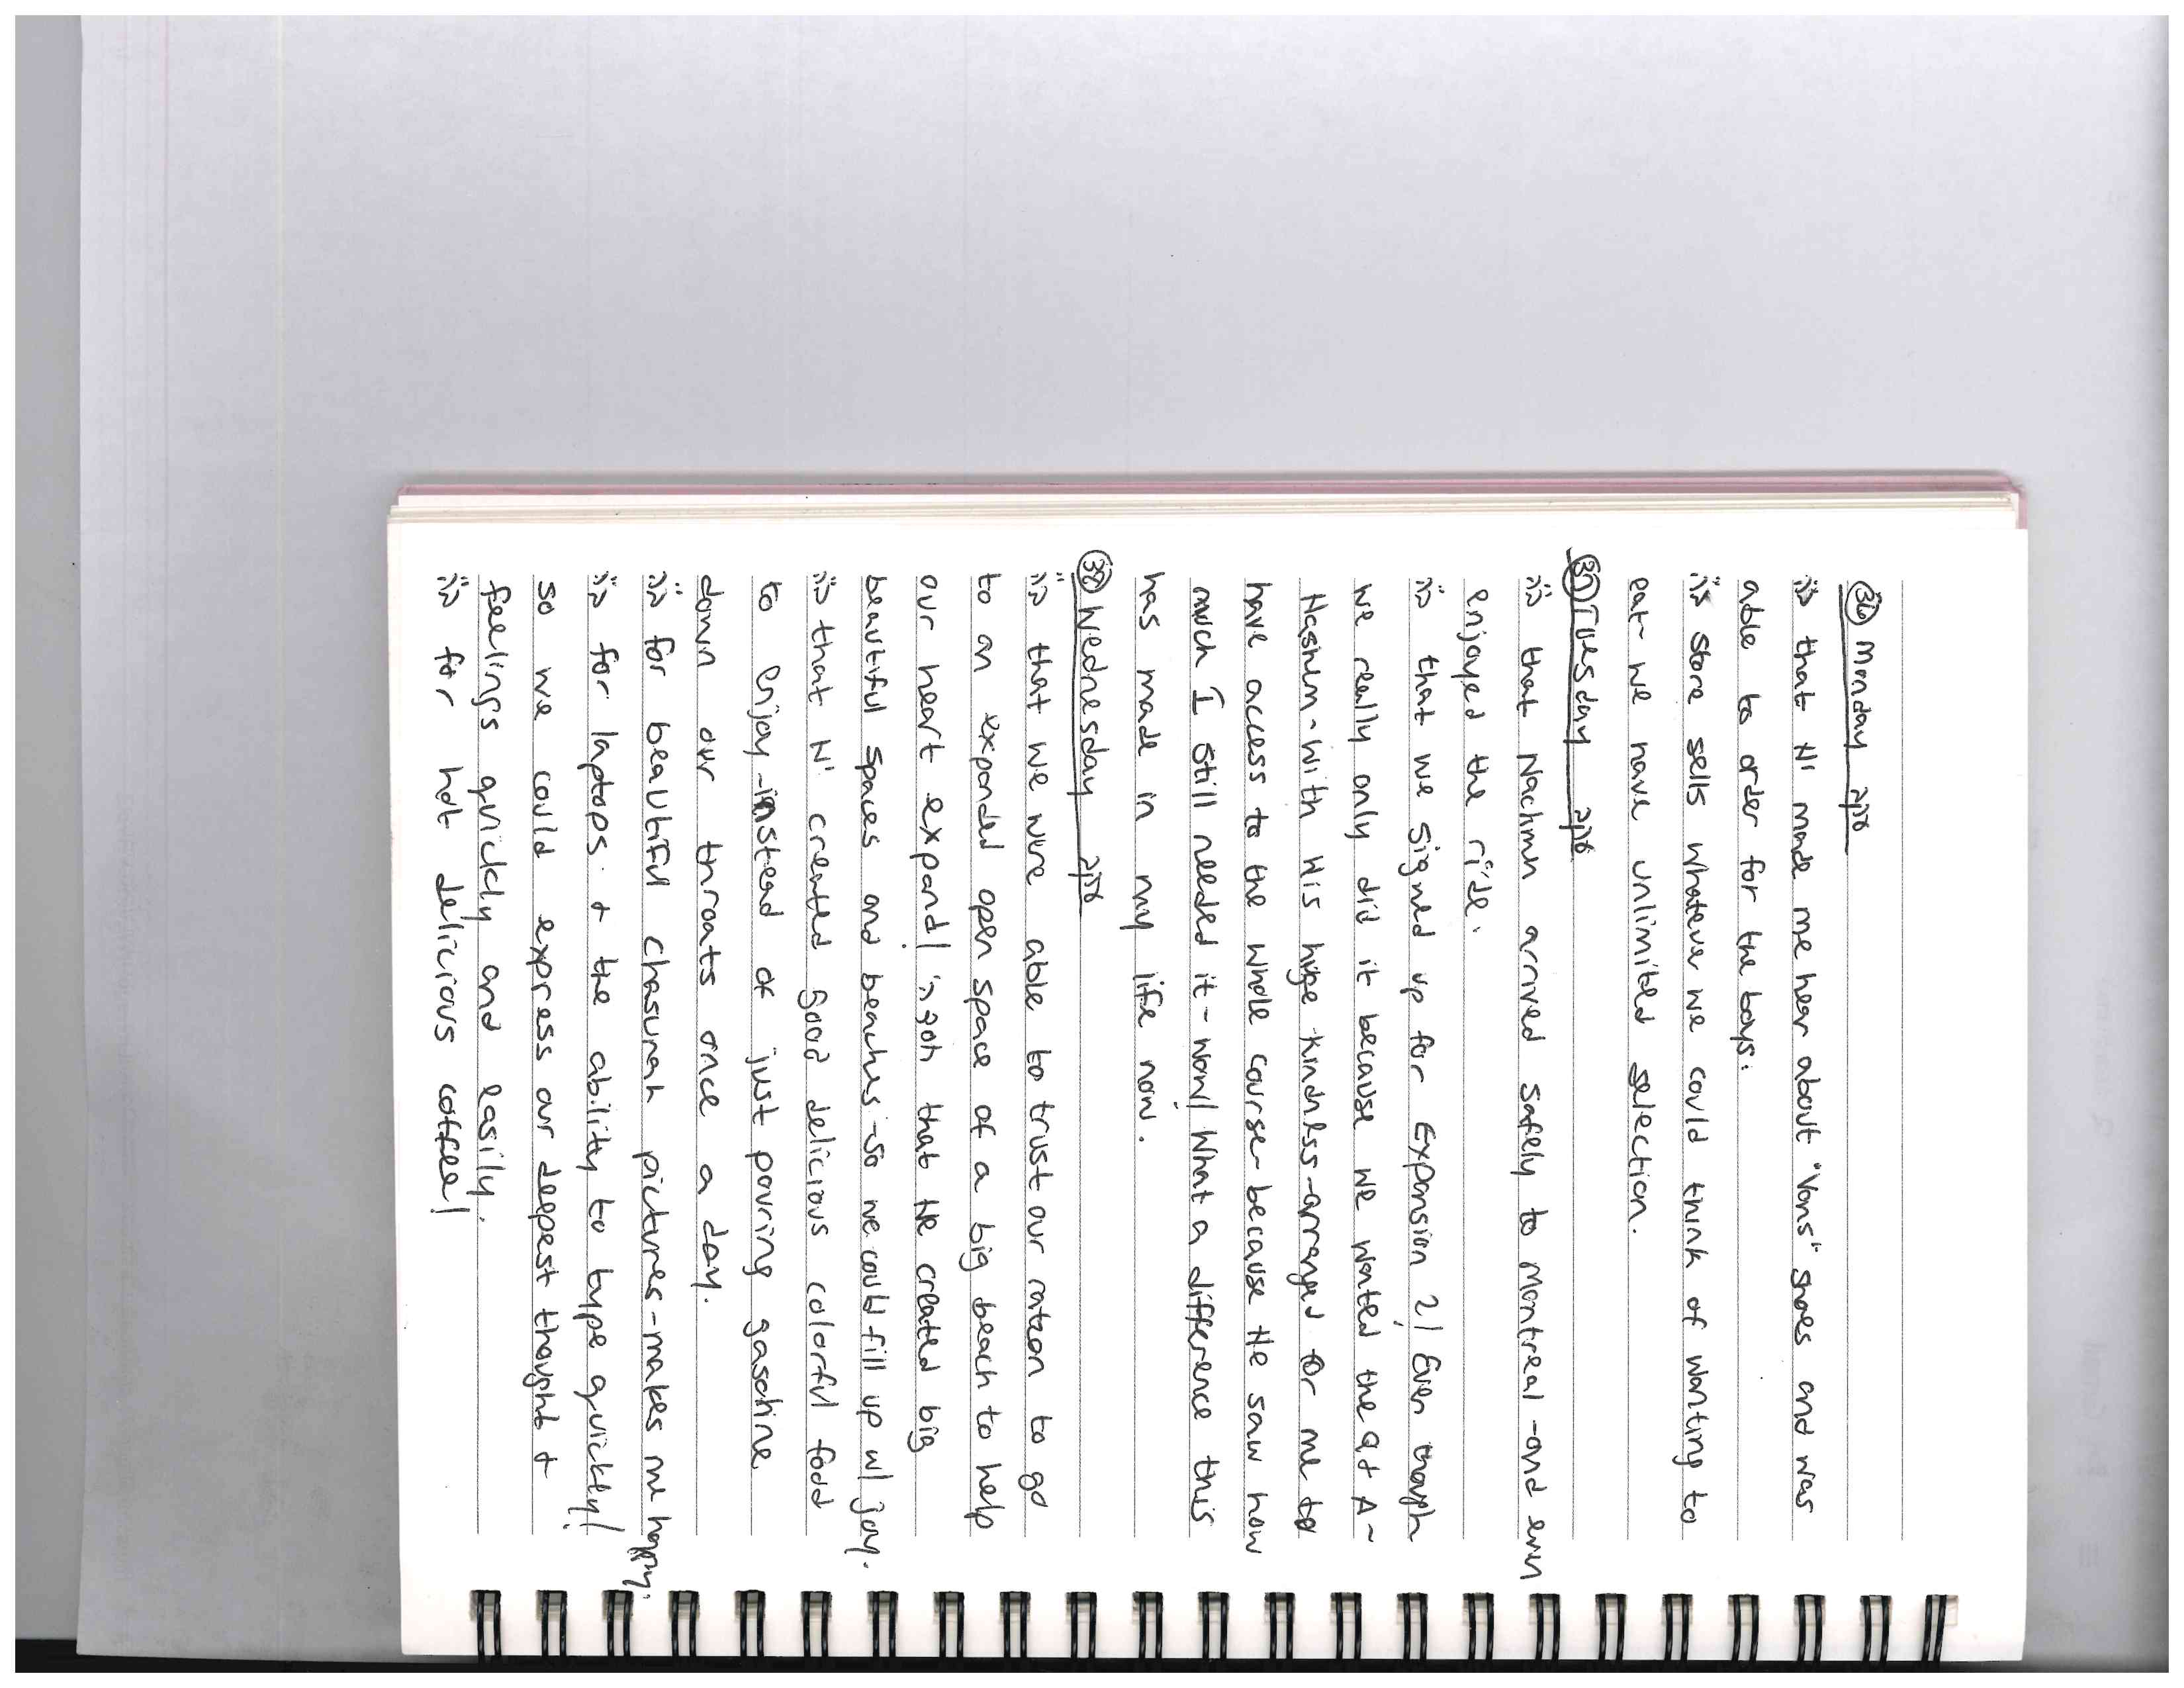 36 Monday
that H' made me hear about "Vans" shoes and was
able to order for the boys.
store sells whatever we could think of wanting to
eat - we have unlimited selection.
37 Tuesday
that Nachmn arrived safely to Montreal - and even
enjoyed the ride.
that we signed up for Expansion 2! Even though
we really only did it because we wanted the Q + A -
Hashem - with His huge kindness - arranged for me to
have access to the whole course - because He saw how
much I still needed it - wow! What a difference this
has made in my life now.
38 Wednesday
that we were able to trust our ratzon to go
to an expanded open space of a big beach to help
our heart expand! that He created big
beautiful spaces and beaches - so we could fill up w/ joy.
that H' created good delicious colorful food
to enjoy - instead of just pouring gasoline
down our throats once a day.
for beautiful chasunah pictures - makes me happy.
for laptops. + the ability to type quickly!
so we could express our deepest thought +
feelings quickly and easily.
for hot delicious coffee!